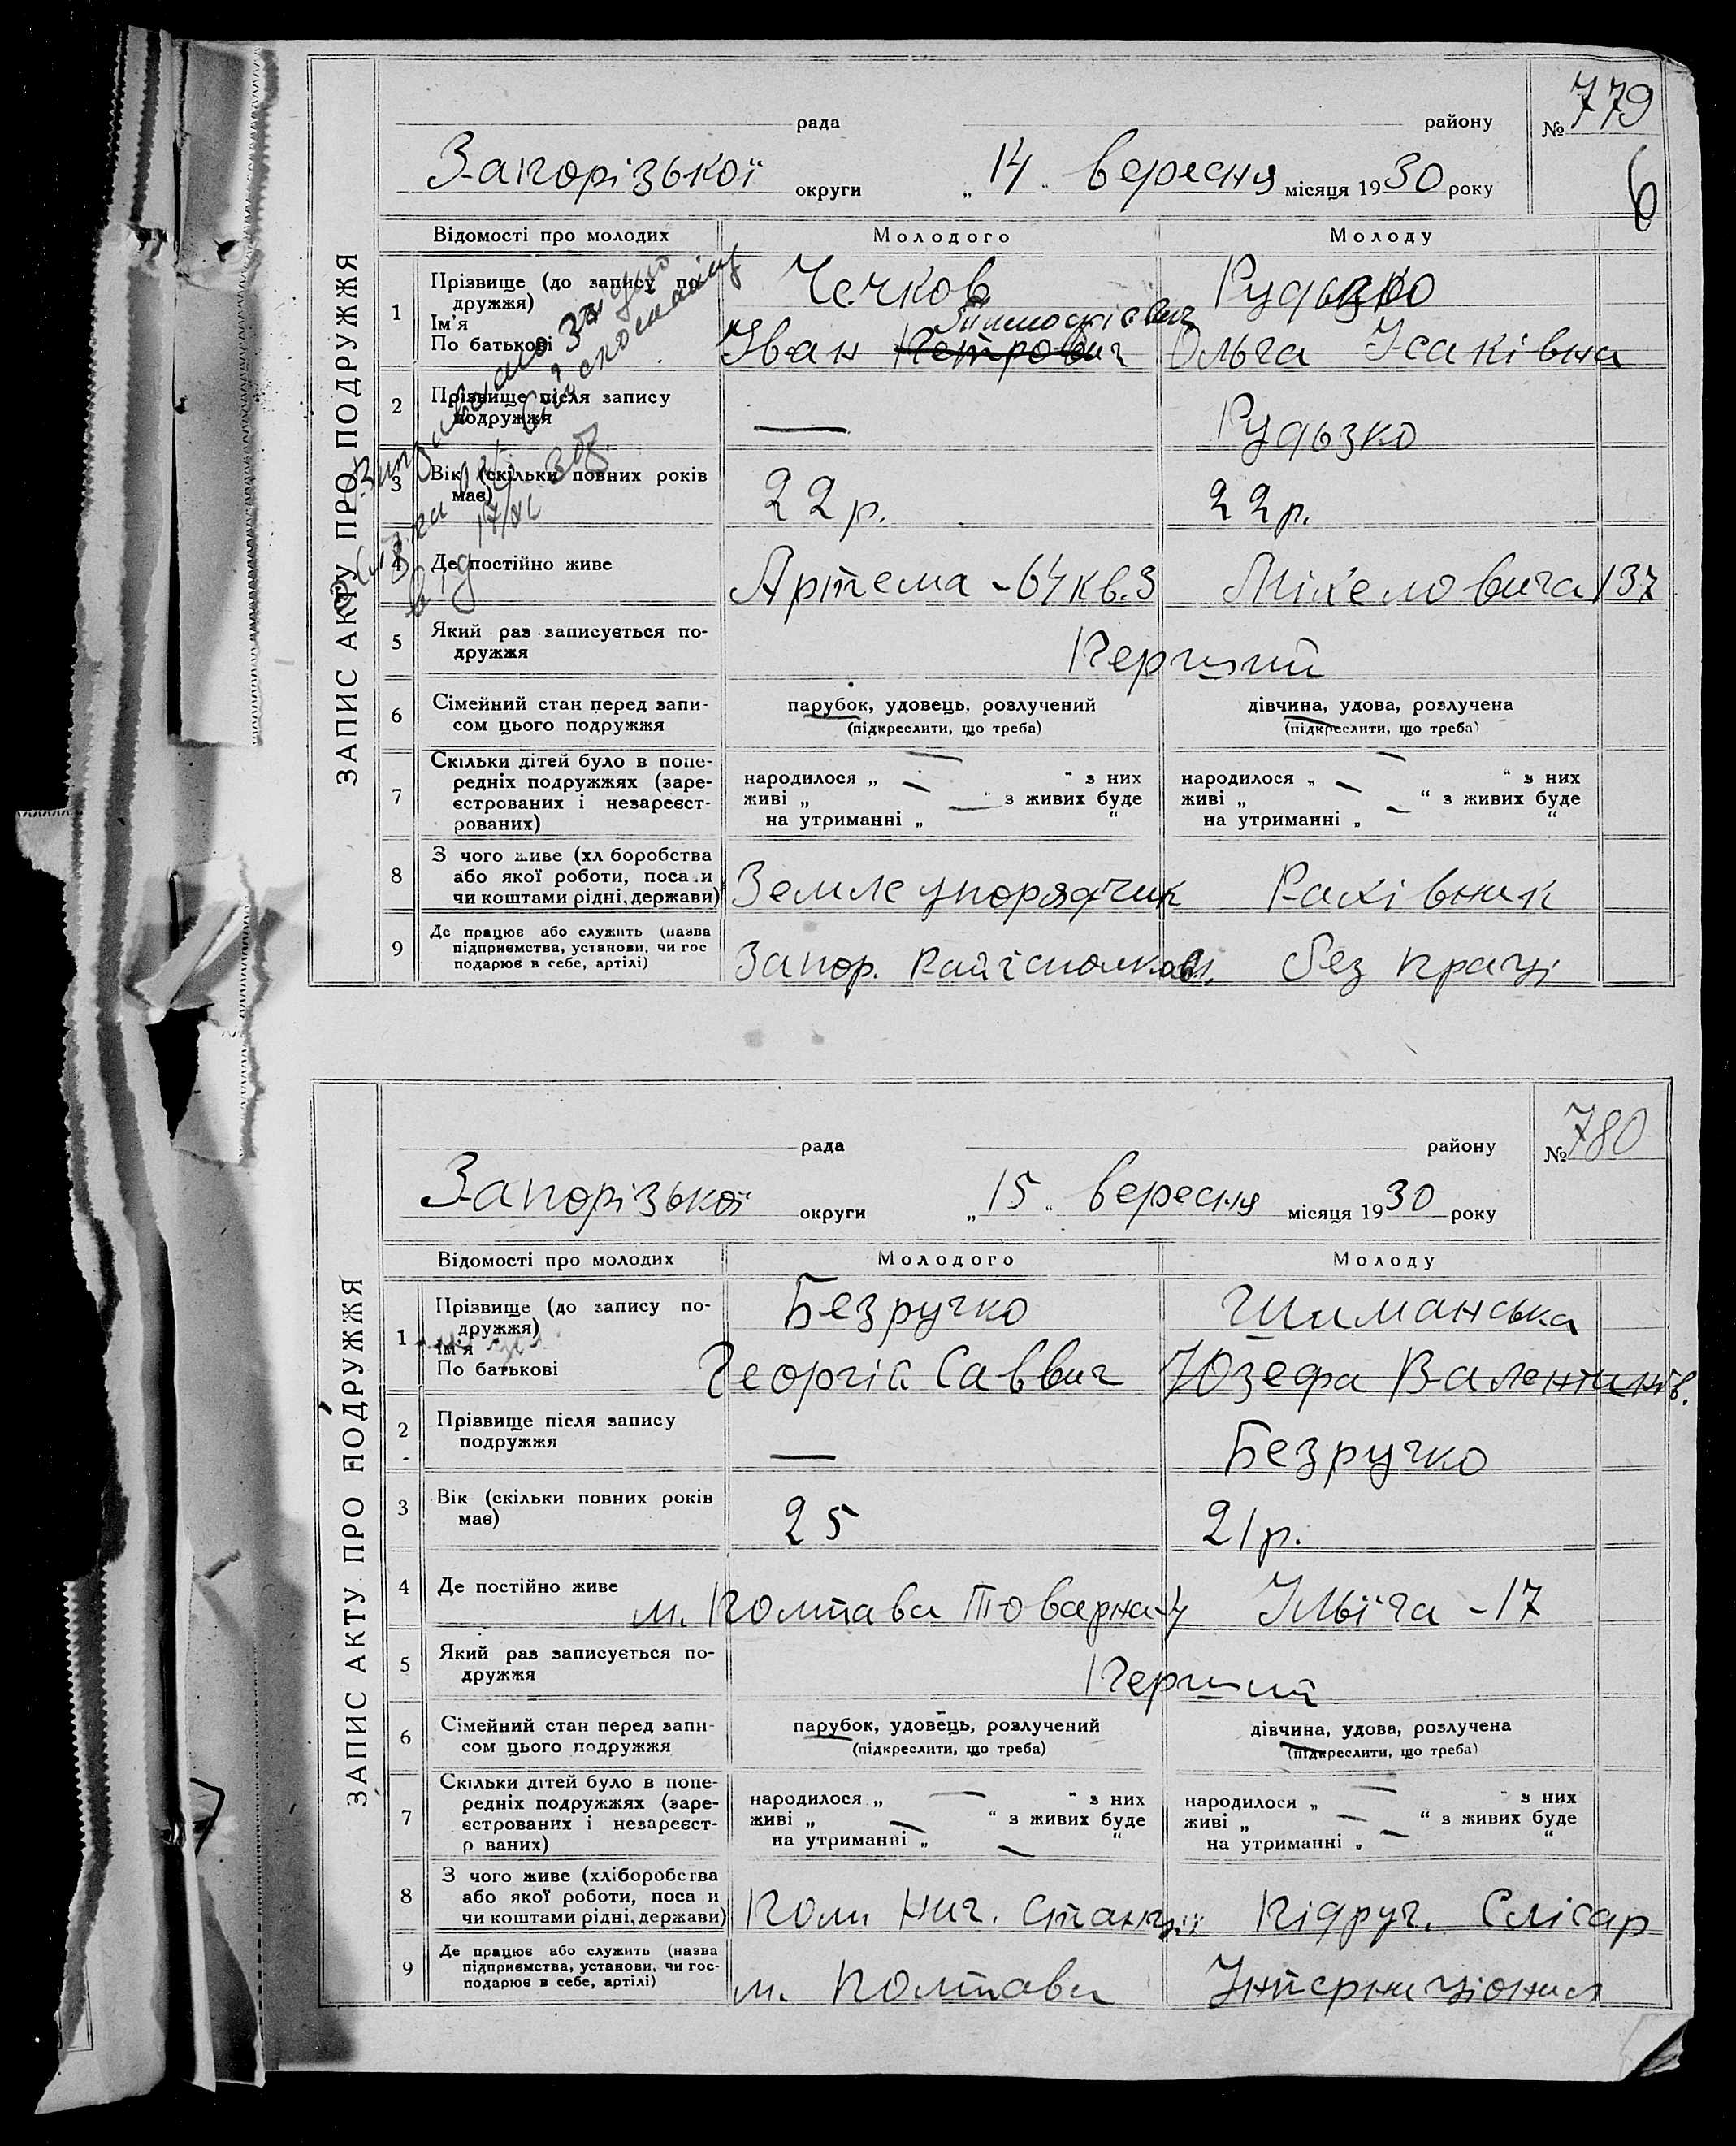 ЗАПИС АКТУ ПРО ПОДРУЖЖЯ
рада району № 779
Запорізької округи „14“ вересня місяця 1930 року
6
Відомості про молодих Молодого Молоду
1 Прізвище (до запису подружжя) Чечков Рудьзко
Ім'я
По батькові Іван Петрович Ольга Ісаківна
2 Прізвище після запису подружжя — Рудьзко
3 Вік (скільки повних років має) 22 р. 22 р.
17/XI 30
4 Де постійно живе Артема - 64 кв. 3 137
5 Який раз записується подружжя Перший
6 Сімейний стан перед записом цього подружжя парубок, удовець, розлучений дівчина, удова, розлучена
(підкреслити, що треба) (підкреслити, що треба)
7 Скільки дітей було в попередніх подружжях (зареєстрованих і незареєстрованих)
народилося „ — “ з них народилося „ — “ з них
живі „ — “ з живих буде живі „ — “ з живих буде
на утриманні „ — “ на утриманні „ — “
8 З чого живе (хл боробства або якої роботи, поса и чи коштами рідні, держави) Землеупорядчик Рахівник
9 Де працює або служить (назва підприємства, установи, чи гос подарює в себе, артілі) Запор. Райісполком. без праці
ЗАПИС АКТУ ПРО ПОДРУЖЖЯ
рада району № 780
Запорізької округи „15“ вересня місяця 1930 року
Відомості про молодих Молодого Молоду
1 Прізвище (до запису подружжя) Безручко Шиманська
Ім'я
По батькові Георгій Саввич Юзефа Валентинів.
2 Прізвище після запису подружжя — Безручко
3 Вік (скільки повних років має) 25 21 р.
4 Де постійно живе м. Полтава Товарна-4 Ілліча - 17
5 Який раз записується подружжя Перший
6 Сімейний стан перед записом цього подружжя парубок, удовець, розлучений дівчина, удова, розлучена
(підкреслити, що треба) (підкреслити, що треба)
7 Скільки дітей було в попередніх подружжях (зареєстрованих і незареєст-р ваних)
народилося „ — “ з них народилося „ — “ з них
живі „ — “ з живих буде живі „ — “ з живих буде
на утриманні „ — “ на утриманні „ — “
8 З чого живе (хліборобства або якої роботи, поса и чи коштами рідні, держави) Пом Нач. Станції Підруч. Слісар
9 Де працює або служить (назва підприємства, установи, чи господарює в себе, артілі) м. Полтава Інтернаціонал